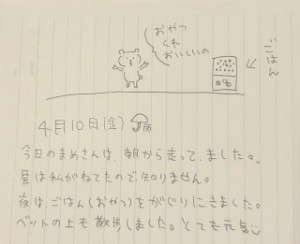 おやつ
くれ
おいしいの
ごはん
4月10日(金)
今日のまめさんは、朝から走ってました。
昼は私がねてたので知りません。
夜はごはん(おやつ)をがじりにきました。
ベットの上も散歩しました。とても元気